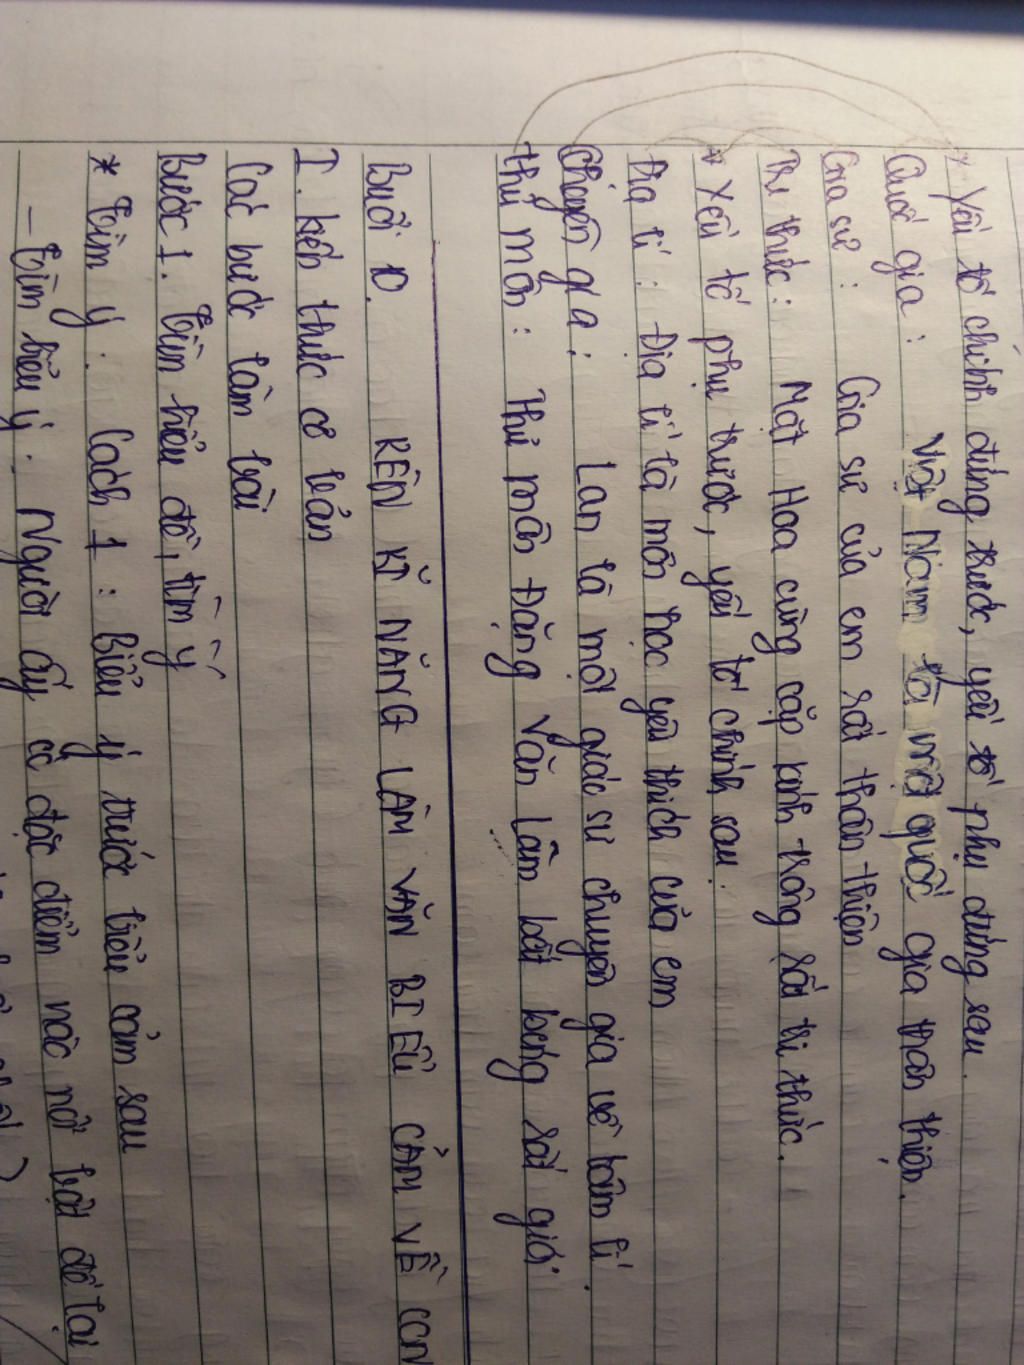 * Yếu tố chính đứng trước, yếu tố phụ đứng sau.
Quốc gia: Việt Nam là một quốc gia thân thiện.
Gia sư: Gia sư của em rất thân thiện
Tri thức: Mặt Hoa cùng cặp kính trông rất tri thức.
* Yếu tố phụ trước, yếu tố chính sau.
Địa lí: Địa lí là môn học yêu thích của em
Chuyên gia: Lan là một giáo sư chuyên gia về tâm lí.
Thủ môn: Thủ môn Đặng Văn Lâm bắt bóng rất giỏi
Buổi 10. RÈN KĨ NĂNG LÀM VĂN BIỂU CẢM VỀ CON
I. Kiến thức cơ bản
Các bước làm bài
Bước 1. Tìm hiểu đề, tìm ý
* Tìm ý. Cách 1: Biểu ý trước biểu cảm sau
- Tìm biểu ý. Người ấy có đặc điểm nào nổi bật để lại